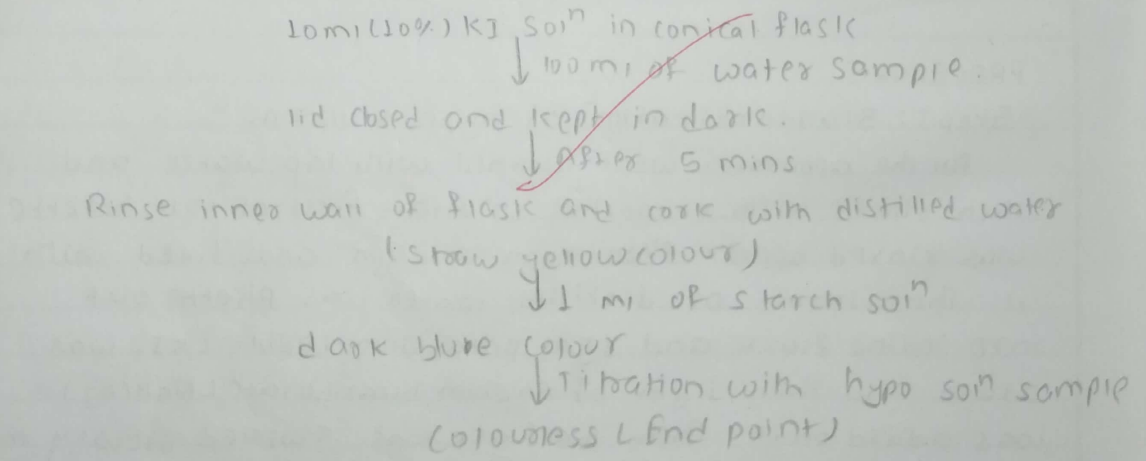 10ml (10%) KI Solⁿ in conical flask
↓ 100 ml of water sample.
lid closed and kept in dark.
↓ After 5 mins
Rinse inner wall of flask and cork with distilled water
(straw yellow colour)
↓ 1 ml of starch solⁿ
dark blue colour
↓ Titration with hypo solⁿ sample
Colourless (End point)